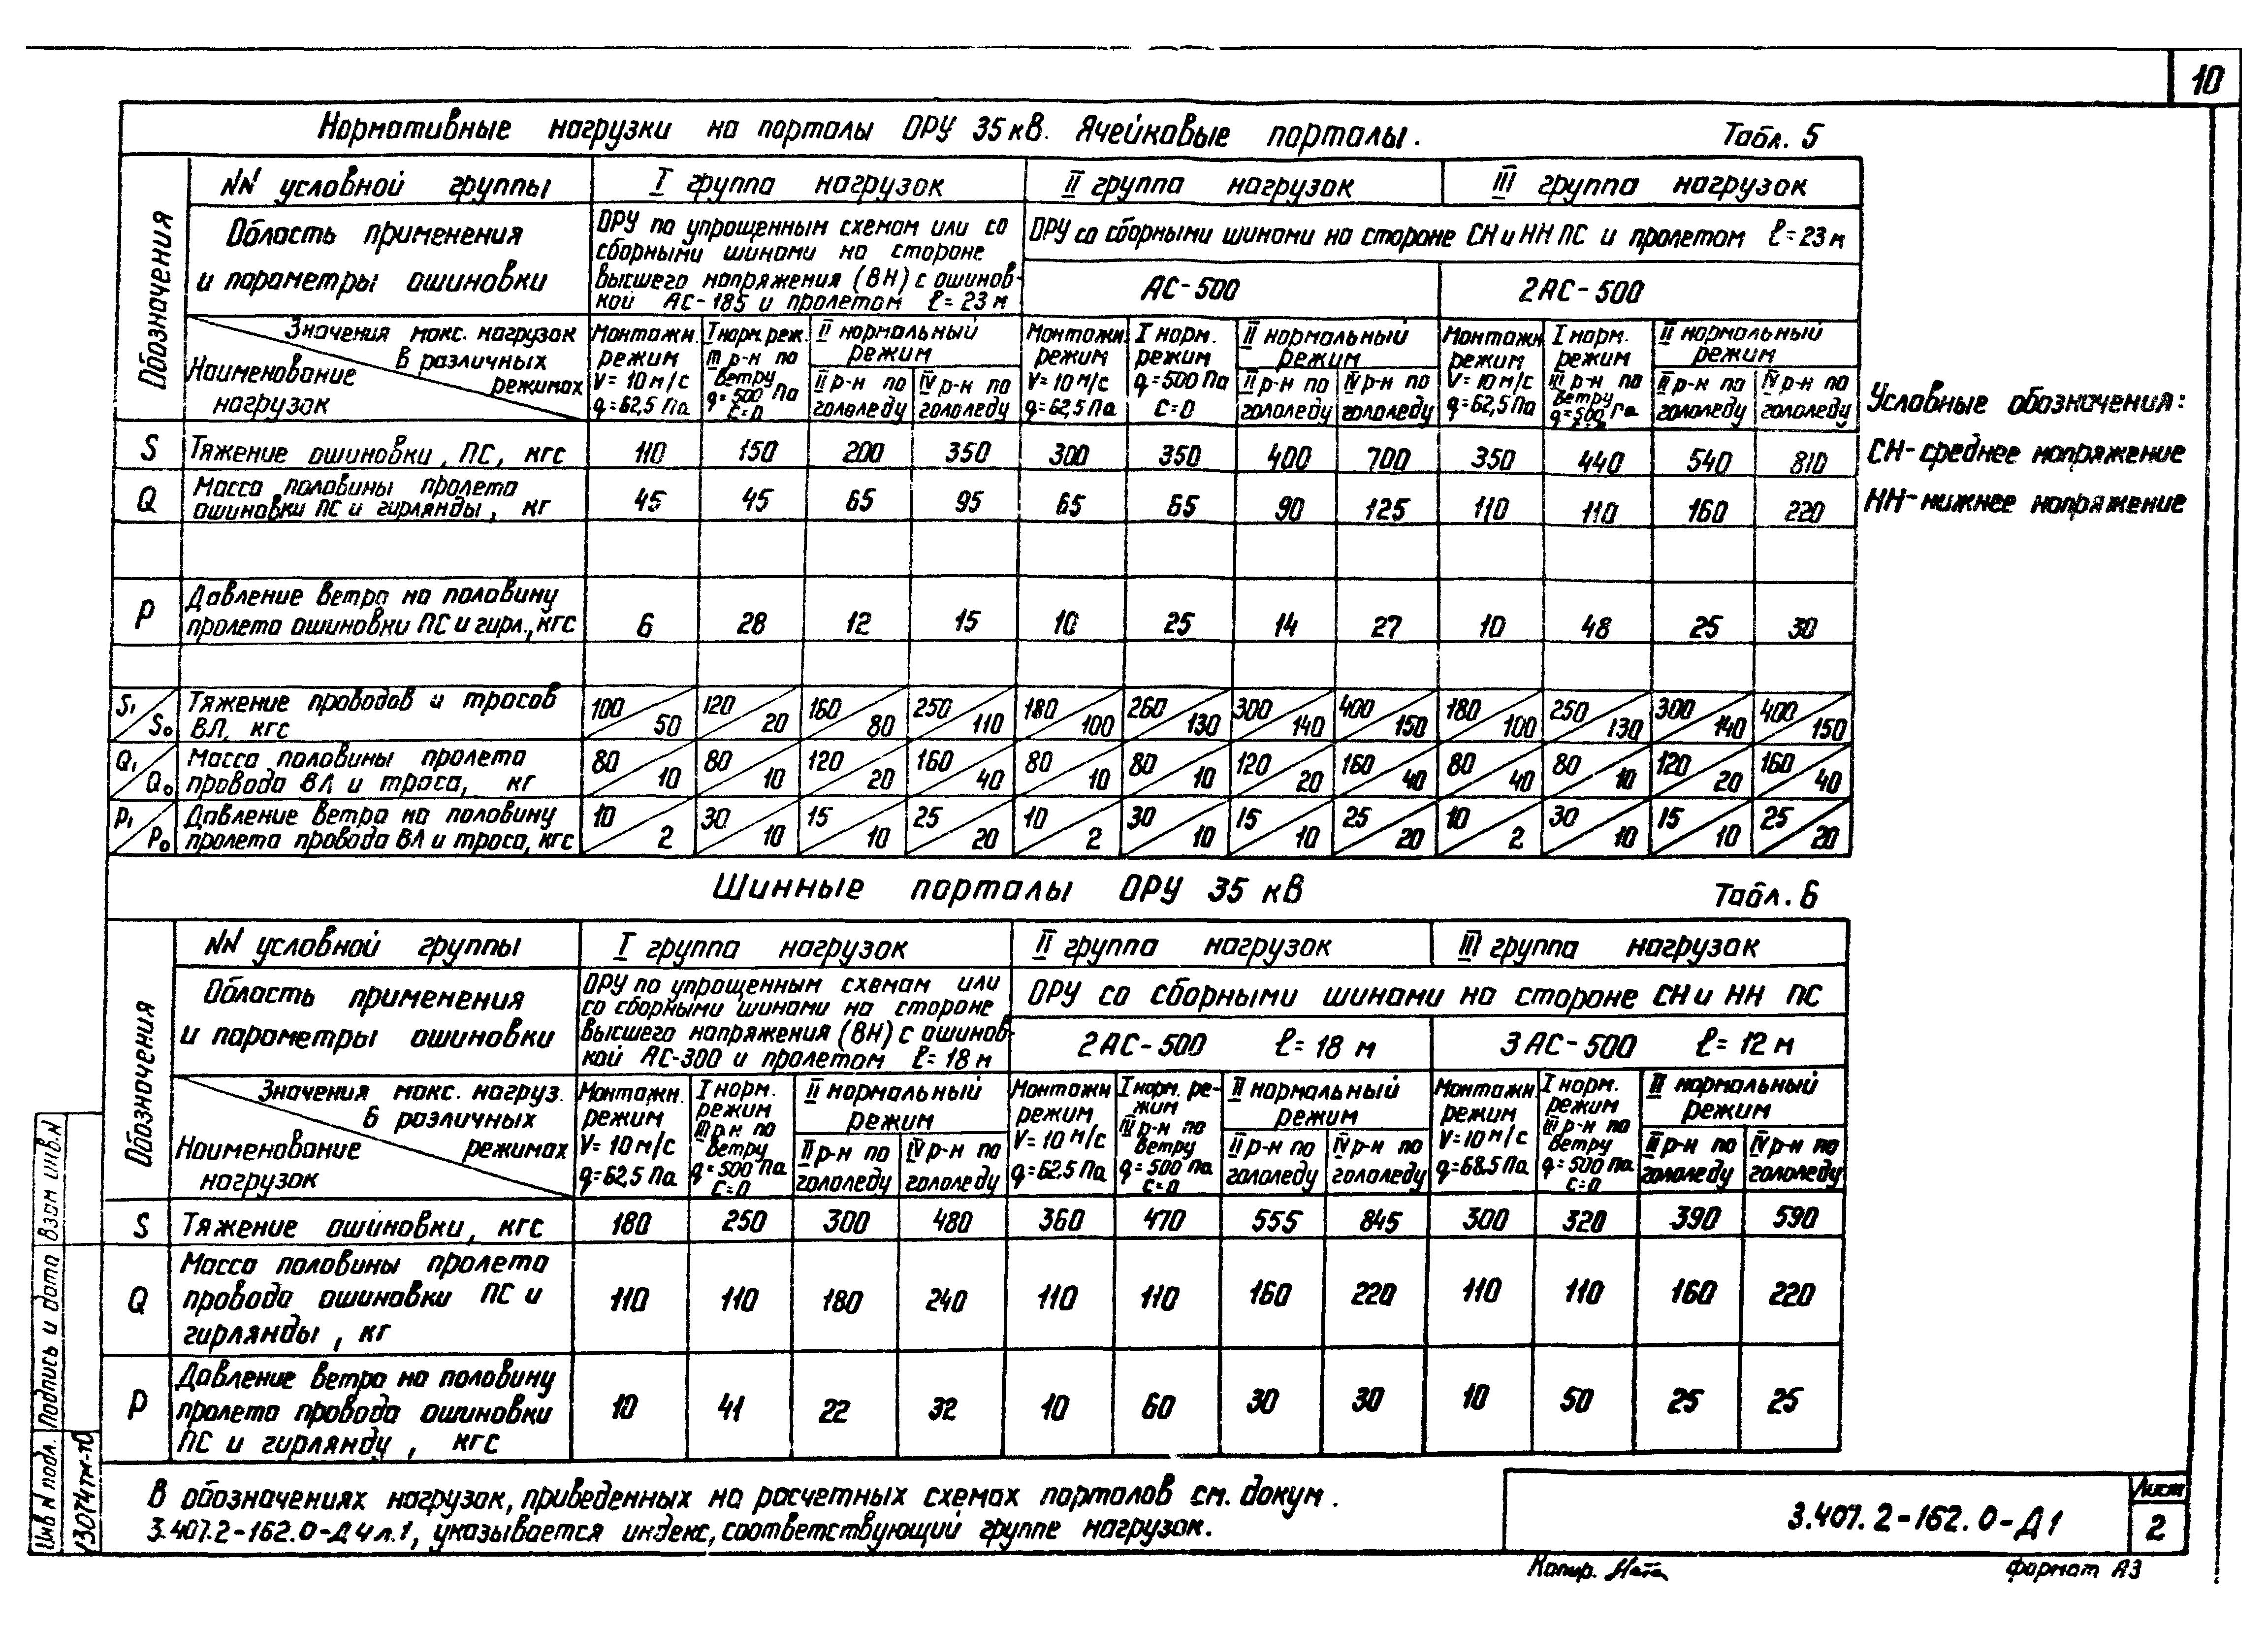 10
Нормативные нагрузки на порталы ОРУ 35 кВ. Ячейковые порталы. Табл. 5
Обозначения
NN условной группы
I группа нагрузок
II группа нагрузок
III группа нагрузок
Область применения
и параметры ошиновки
ОРУ по упрощенным схемам или со
сборными шинами на стороне
высшего напряжения (ВН) с ошинов-
кой АС-185 и пролетом ℓ=23 м
ОРУ со сборными шинами на стороне СН и НН ПС и пролетом ℓ=23 м
АС-500
2АС-500
Значения макс. нагрузок
в различных
режимах
Наименование
нагрузок
Монтажн. режим V=10 м/с q=62,5 Па
I норм. реж. III р-н по ветру q=500 Па C=0
II нормальный режим
II р-н по гололеду
IV р-н по гололеду
Монтажн. режим V=10 м/с q=62,5 Па
I норм. режим q=500 Па C=0
II нормальный режим
II р-н по гололеду
IV р-н по гололеду
Монтажн режим V=10 м/с q=62,5 Па
I норм. режим III р-н по ветру q=500 Па
II нормальный режим
II р-н по гололеду
IV р-н по гололеду
S Тяжение ошиновки, ПС, кгс 110 150 200 350 300 350 400 700 350 440 540 810
Q Масса половины пролета
ошиновки ПС и гирлянды, кг 45 45 65 95 65 65 90 125 110 110 160 220
P Давление ветра на половину
пролета ошиновки ПС и гирл., кгс 6 28 12 15 10 25 14 27 10 48 25 30
S₁/S₀ Тяжение проводов и тросов
ВЛ, кгс 100/50 120/20 160/80 250/110 180/100 260/130 300/140 400/150 180/100 250/130 300/140 400/150
Q₁/Q₀ Масса половины пролета
провода ВЛ и троса, кг 80/10 80/10 120/20 160/40 80/10 80/10 120/20 160/40 80/40 80/10 120/20 160/40
P₁/P₀ Давление ветра на половину
пролета провода ВЛ и троса, кгс 10/2 30/10 15/10 25/20 10/2 30/10 15/10 25/20 10/2 30/10 15/10 25/20
Условные обозначения:
СН-среднее напряжение
НН-нижнее напряжение
Шинные порталы ОРУ 35 кВ Табл. 6
Обозначения
NN условной группы
I группа нагрузок
II группа нагрузок
III группа нагрузок
Область применения
и параметры ошиновки
ОРУ по упрощенным схемам или
со сборными шинами на стороне
высшего напряжения (ВН) с ошинов-
кой АС-300 и пролетом ℓ=18 м
ОРУ со сборными шинами на стороне СН и НН ПС
2АС-500 ℓ=18 м
3АС-500 ℓ=12 м
Значения макс. нагруз.
в различных
режимах
Наименование
нагрузок
Монтажн. режим V=10 м/с q=62,5 Па
I норм. режим III р-н по ветру q=500 Па C=0
II нормальный режим
II р-н по гололеду
IV р-н по гололеду
Монтажн режим V=10 м/с q=62,5 Па
I норм. ре-жим III р-н по ветру q=500 Па C=0
II нормальный режим
II р-н по гололеду
IV р-н по гололеду
Монтажн. режим V=10 м/с q=68.5 Па
I норм. режим III р-н по ветру q=500 Па C=0
II нормальный режим
II р-н по гололеду
IV р-н по гололеду
S Тяжение ошиновки, кгс 180 250 300 480 360 470 555 845 300 320 390 590
Q Масса половины пролета
провода ошиновки ПС и
гирлянды, кг 110 110 180 240 110 110 160 220 110 110 160 220
P Давление ветра на половину
пролета провода ошиновки
ПС и гирлянду, кгс 10 41 22 32 10 60 30 30 10 50 25 25
В обозначениях нагрузок, приведенных на расчетных схемах порталов см. докум.
3.407.2-162.0-Д4л.1, указывается индекс, соответствующий группе нагрузок.
3.407.2-162.0-Д1
Лист
2
Инв N подл. Подпись и дата Взам инв.N
13074тм-т0
Копир.
Формат А3